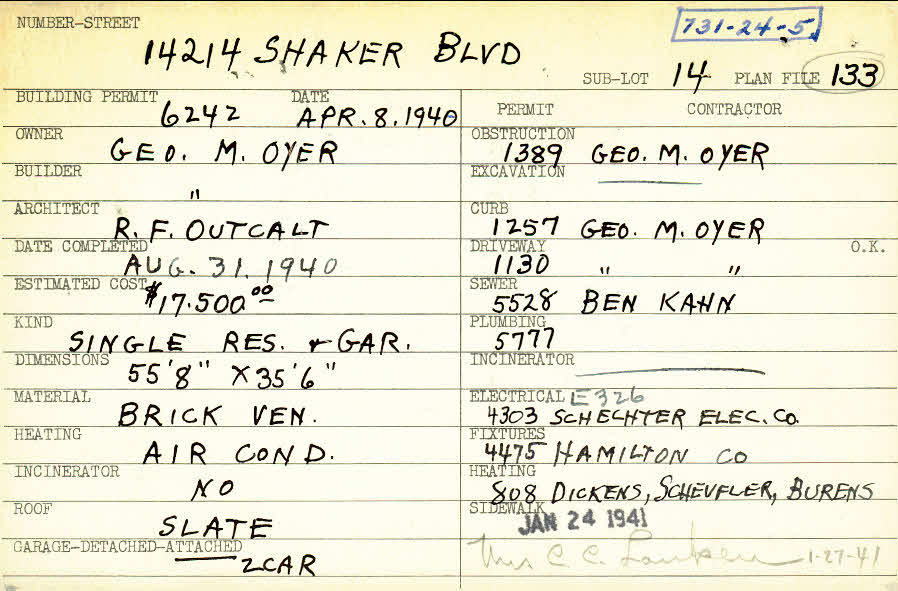 NUMBER-STREET
731-24-5
14214 SHAKER BLVD
SUB-LOT 14 PLAN FILE 133
BUILDING PERMIT DATE
6242 APR. 8. 1940
OWNER
GEO. M. OYER
BUILDER
"
ARCHITECT
R. F. OUTCALT
DATE COMPLETED
AUG. 31. 1940
ESTIMATED COST
$17.500 00
KIND
SINGLE RES. + GAR.
DIMENSIONS
55'8" X 35'6"
MATERIAL
BRICK VEN.
HEATING
AIR COND.
INCINERATOR
NO
ROOF
SLATE
GARAGE-DETACHED-ATTACHED
2 CAR
PERMIT CONTRACTOR
OBSTRUCTION
1389 GEO. M. OYER
EXCAVATION
CURB
1257 GEO. M. OYER
DRIVEWAY O.K.
1130 " "
SEWER
5528 BEN KAHN
PLUMBING
5777
INCINERATOR
ELECTRICAL E326
4303 SCHECHTER ELEC. CO.
FIXTURES
4475 HAMILTON CO
HEATING
808 DICKENS, SCHEUFLER, BURENS
SIDEWALK
JAN 24 1941
Mrs C. C. 1-27-41